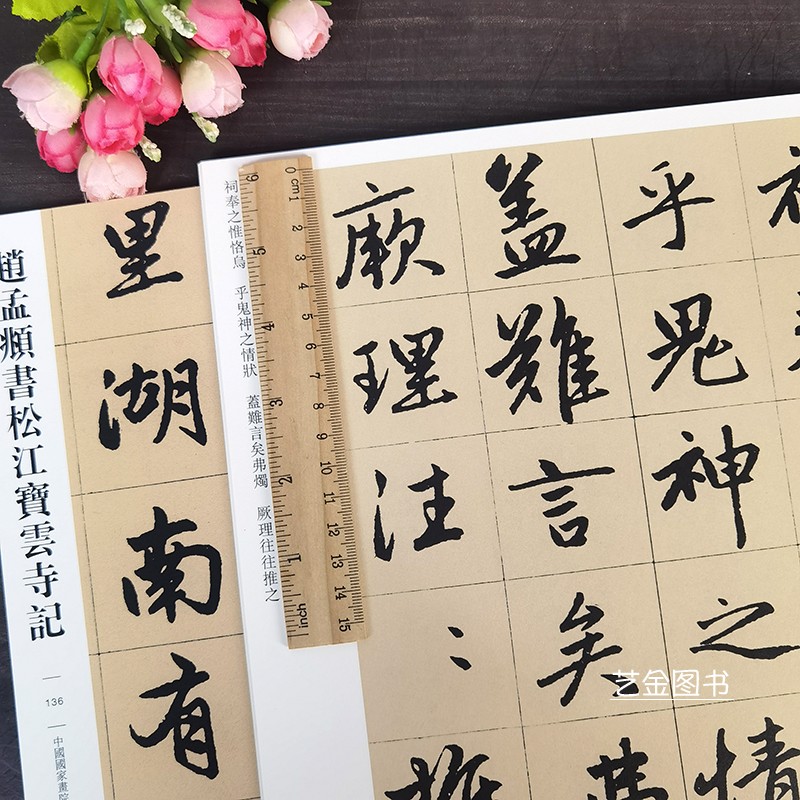 乎鬼神之情
盖難言矣弗
厥理往〻推
祠奉之惟恪烏 乎鬼神之情狀 蓋難言矣弗燭 厥理往往推之
0 cm 1 2 3 4 5 6 7 8 9 10 11 12 13 14 15
6 5 4 3 2 1 inch
里湖南有
趙孟頫書松江寶雲寺記
136
中國國家畫院
艺金图书